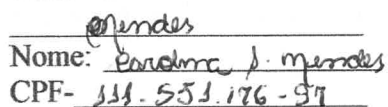 Mendes
Nome: Carolina S. Mendes
CPF- 111.551.176-97